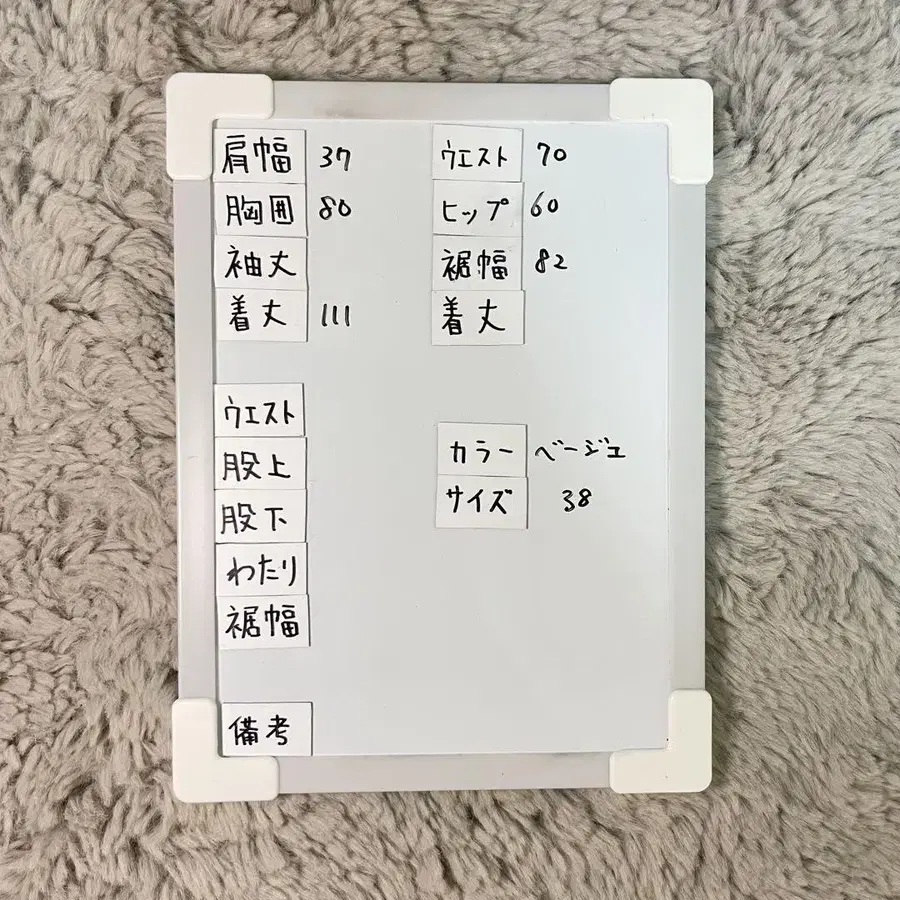 肩幅 37
胸囲 80
袖丈
着丈 111
ウエスト 70
ヒップ 60
裾幅 82
着丈
ウエスト
股上
股下
わたり
裾幅
カラー ベージュ
サイズ 38
備考